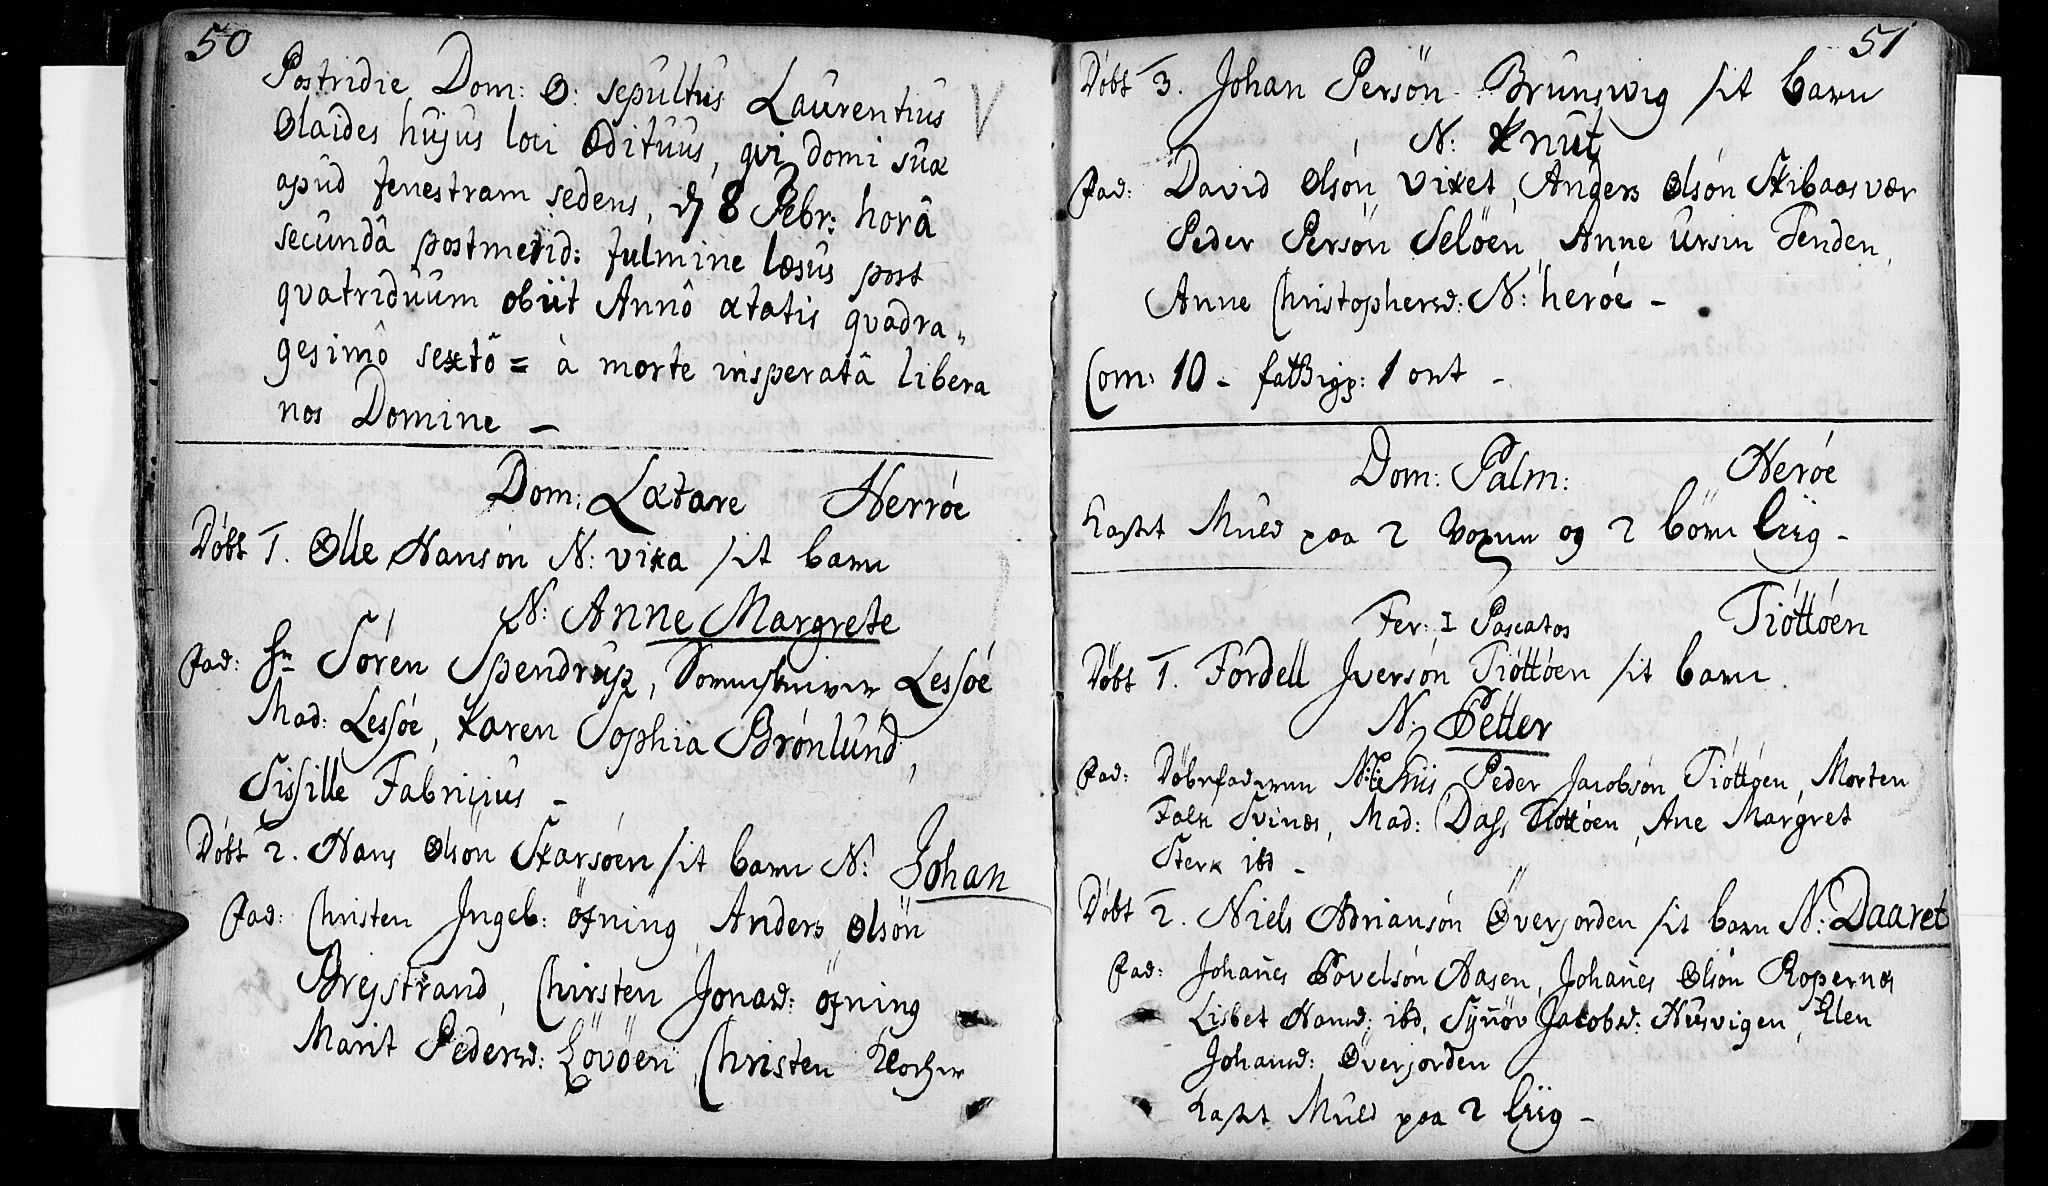 50
Postridie Dom: O: sepultus Laurentius
Olaides hujus loci Ædituus, qvi domi suæ
apud fenestram sedens, d 8 Febr: horâ
secundâ postmerid: fulmine læsus post
qvatriduum obiit Annô ætatis qvadra„
gesimô sextô = à morte insperatâ libera
nos Domine –
Dom: Lætare Herröe
Döbt 1. Olle Hansön N: vika sit barn
N: Anne Margrete
Fad: Hr Sören Spendrup, Sorenskriver Lessöe
Mad: Lessöe, Karen Sophia Brönlund,
Sissille Fabrijius –
Döbt 2. Hans Olsön Skarsöen sit barn N: Johan
Fad: Christen Ingeb: öfning, Anders Olsön
Brejstrand, Chirsten Jonasd: öfning
Marit Pedersd: Lövöen, Christen Klocher
51
Döbt 3. Johan Persön Brunsvig sit barn
N: Knut
Fad: David Olsön Viket, Anders Olsön Skibaasvær
Peder Persön Selöen, Anne Ursin Tenden,
Anne Christophersd: N: heröe –
Com: 10 – fattigp: 1 ort –
Dom: Palm: Heröe
Kastet Muld paa 2 voxne og 2 börn Liig –
Fer: I Pascatos Tiöttöen
Döbt 1. Fordell Iversön Tiöttöen sit barn
N: Petter
Fad: Peder Jacobsön Tiöttöen, Morten
Falk Svinæs, Mad: Dass Tiöttöen, Ane Margret
Sterk ibd –
Döbt 2. Niels Adriansön Överjorden sit barn N: Daaret
Fad: Johañes Povelsön Aasen, Johañes Olsön Ropernæs
Lisbet Hansd: ibd, Syñöv Jacobsd: Husvigen, Elen
Johansd: Överjorden
Kastet Muld paa 2 Liig –